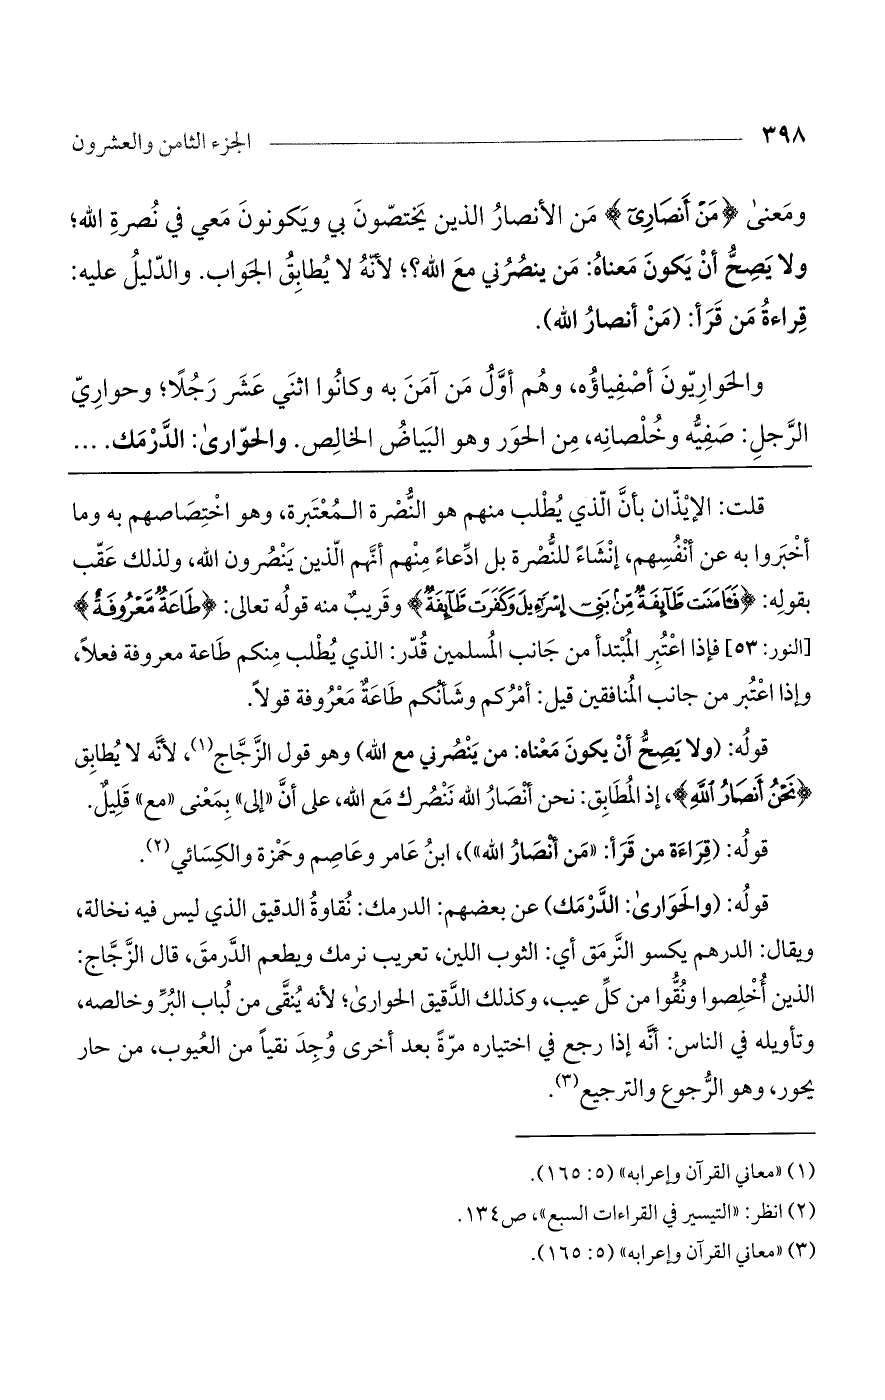 ٣٩٨ الجزء الثامن والعشرون
ومَعنىٰ ﴿مَنْ أَنصَارِىٓ﴾ مَن الأنصارُ الذين يَختصّونَ بي ويَكونونَ مَعي في نُصرةِ الله؛
ولا يَصِحُّ أنْ يَكونَ مَعناهُ: مَن ينصُرُني معَ الله؟؛ لأنّهُ لا يُطابِقُ الجَواب. والدّليلُ عليه:
قِراءةُ مَن قَرَأ: (مَنْ أنصارُ الله).
والحَوارِيّونَ أصْفِياؤُه، وهُم أوَّلُ مَن آمَنَ به وكانُوا اثنَي عَشَر رَجُلًا؛ وحوارِيّ
الرَّجلِ: صَفِيُّه وخُلْصانِه، مِن الحوَر وهو البَياضُ الخالِص. والحوّارىٰ: الدَّرْمَك. ...
قلت: الإيْذّان بأنَّ الّذي يُطْلب منهم هو النُّصْرة الـمُعْتَبرة، وهو اخْتِصَاصهم به وما
أخْبَروا به عن أنْفُسِهم، إنْشَاءً للنُّصْرة بل ادِّعاءً مِنْهم أنَّهم الّذين يَنْصُرون الله، ولذلك عَقّب
بقولِه: ﴿فَـَٔامَنَت طَّآئِفَةٌ مِّنۢ بَنِىٓ إِسْرَٰٓءِيلَ وَكَفَرَت طَّآئِفَةٌ﴾ وقَريبٌ منه قولُه تعالى: ﴿طَاعَةٌ مَّعْرُوفَةٌ﴾
[النور: ٥٣] فإذا اعْتُبِر المُبْتدأ من جَانب المُسلمين قُدّر: الذي يُطْلب مِنكم طَاعة معروفة فعلاً،
وإذا اعْتُبر من جانب المُنافقين قيل: أمْرُكم وشَأنُكم طَاعَةٌ مَعْرُوفة قولاً.
قولُه: (ولا يَصِحُّ أنْ يكونَ مَعْناه: من يَنْصُرني مع الله) وهو قول الزَّجَّاج(١)، لأنَّه لا يُطابِق
﴿نَحْنُ أَنصَارُ ٱللَّهِ﴾، إذ المُطَابِق: نحن أنْصَارُ الله نَنْصُرك مَع الله، على أنَّ «إلى» بِمَعْنى «مع» قَلِيلٌ.
قولُه: (قِرَاءَة من قَرَأ: «مَن أنْصَارُ الله»)، ابنُ عَامر وعَاصِم وحَمْزة والكِسَائي(٢).
قولُه: (والحَوارىٰ: الدَّرْمَك) عن بعضهم: الدرمك: نُقاوةُ الدقيق الذي ليس فيه نخالة،
ويقال: الدرهم يكسو النَّرمَق أي: الثوب اللين، تعريب نرمك ويطعم الدَّرمقَ، قال الزَّجَّاج:
الذين أُخْلِصوا ونُقُّوا من كلِّ عيب، وكذلك الدَّقيق الحوارىٰ؛ لأنه يُنقَّى من لُباب البُرِّ وخالصه،
وتأويله في الناس: أنَّه إذا رجع في اختياره مرّةً بعد أخرى وُجِدَ نقياً من العُيوب، من حار
يحور، وهو الرُّجوع والترجيع(٣).
(١) «معاني القرآن وإعرابه» (٥: ١٦٥).
(٢) انظر: «التيسير في القراءات السبع»، ص١٣٤.
(٣) «معاني القرآن وإعرابه» (٥: ١٦٥).